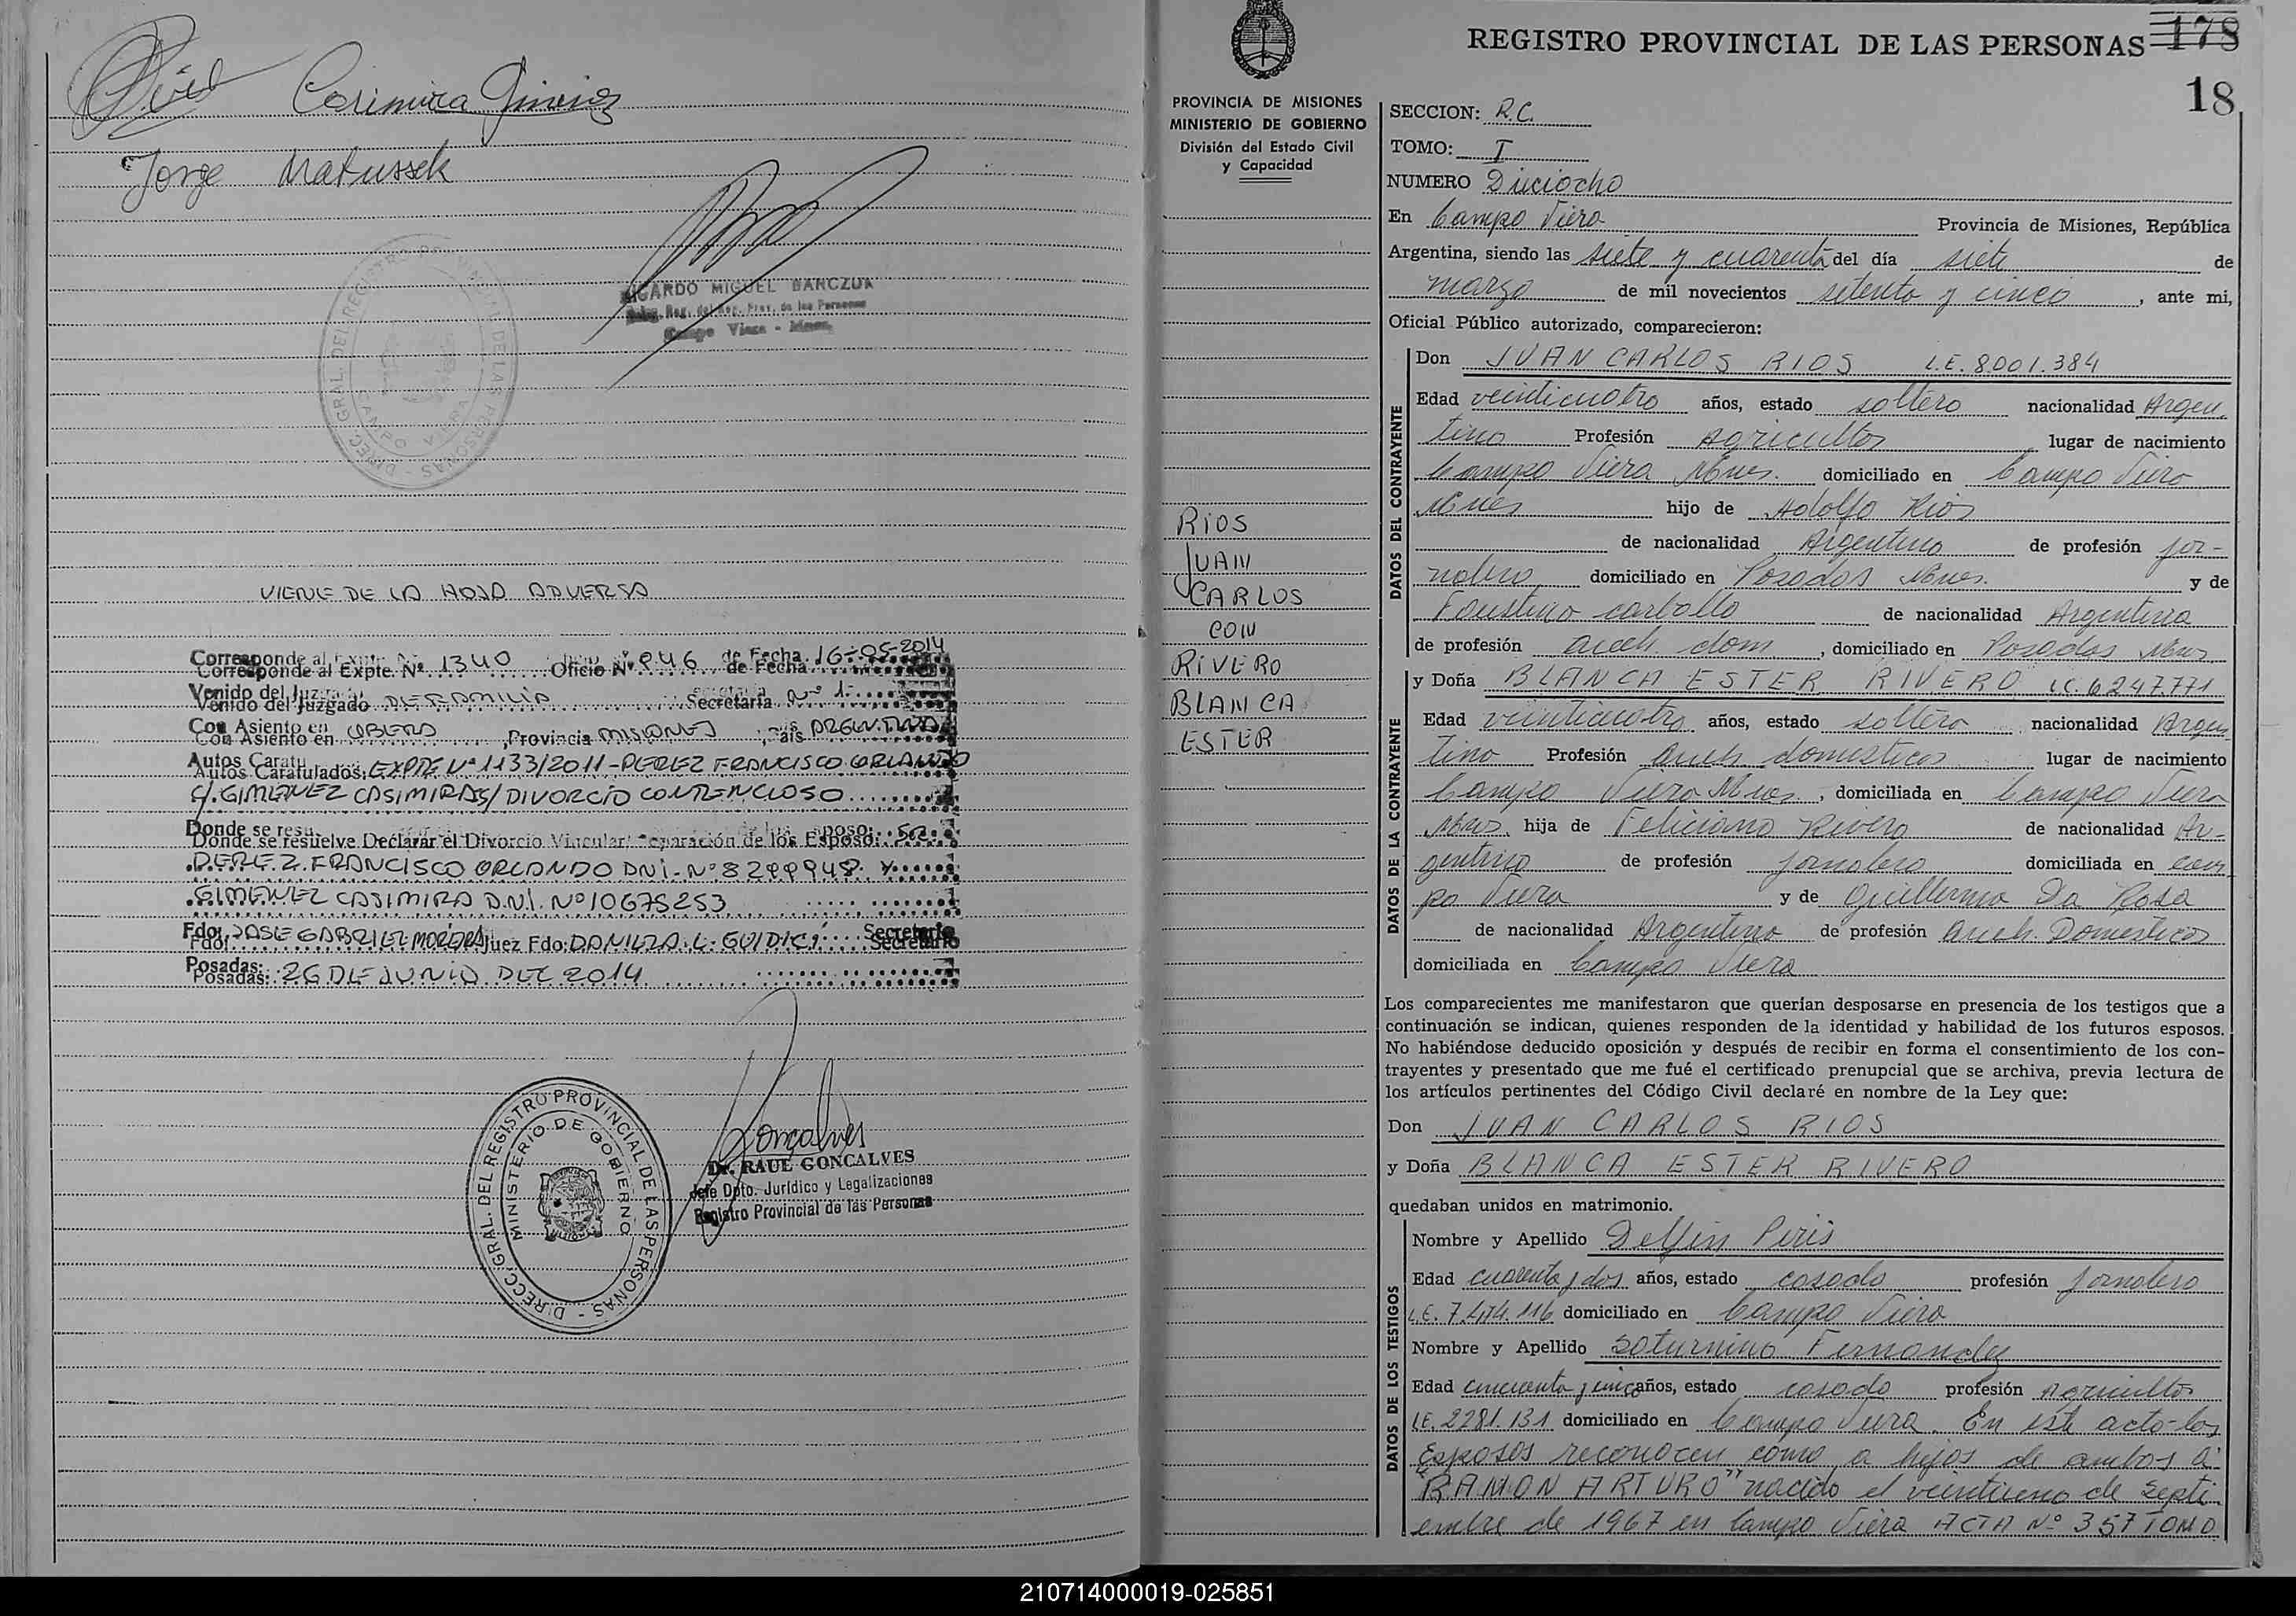 Casimira Gimenez
Jorge Matussek
RICARDO MIGUEL BARCZUK
Deleg. Reg. del Reg. Prov. de las Personas
Campo Viera - Mnes.
VIENE DE LA HOJA ADVERSA
Corresponde al Expte. Nº 1340 Oficio Nº 846 de Fecha 16-05-2014
Venido del Juzgado DE FAMILIA Secretaría Nº 1
Con Asiento en OBERA, Provincia MISIONES, País ARGENTINA
Autos Caratulados: EXPTE Nº 1133/2011 - PEREZ FRANCISCO ORLANDO
C/. GIMENEZ CASIMIRA S/ DIVORCIO CONTENCIOSO
Donde se resuelve Declarar el Divorcio Vincular/ Separación de los Esposo: SR.
PEREZ FRANCISCO ORLANDO DNI-Nº 8299948 Y
GIMENEZ CASIMIRA D.N.I. Nº 10675253
Fdo: JOSE GABRIEL MOREIRA Juez Fdo: DANILZA L. GUIDICI Secretario
Posadas: 26 DE JUNIO DEL 2014
DIRECC. GRAL. DEL REGISTRO PROVINCIAL DE LAS PERSONAS
MINISTERIO DE GOBIERNO
Goncalves
Dr. RAUL GONCALVES
Jefe Dpto. Jurídico y Legalizaciones
Registro Provincial de las Personas
REGISTRO PROVINCIAL DE LAS PERSONAS 178
18
PROVINCIA DE MISIONES
MINISTERIO DE GOBIERNO
División del Estado Civil
y Capacidad
RIOS
JUAN
CARLOS
CON
RIVERO
BLANCA
ESTER
SECCION: R.C.
TOMO: I
NUMERO Dieciocho
En Campo Viera Provincia de Misiones, República
Argentina, siendo las siete y cuarenta del día siete de
marzo de mil novecientos setenta y cinco, ante mi,
Oficial Público autorizado, comparecieron:
DATOS DEL CONTRAYENTE
Don JUAN CARLOS RIOS L.E. 8001.384
Edad veinticuatro años, estado soltero nacionalidad Argen
tino Profesión Agricultor lugar de nacimiento
Campo Viera Mnes. domiciliado en Campo Viera
Mnes hijo de Adolfo Rios
de nacionalidad Argentino de profesión jor-
nalero domiciliado en Posadas Mnes. y de
Faustina carballo de nacionalidad Argentina
de profesión aueh. dom, domiciliado en Posadas Mnes
DATOS DE LA CONTRAYENTE
y Doña BLANCA ESTER RIVERO LC. 6247.771
Edad veinticuatro años, estado soltera nacionalidad Argen
tina Profesión queh. domesticos lugar de nacimiento
Campo Viera Mnes., domiciliada en Campo Viera
Mnes, hija de Feliciano Rivero de nacionalidad Ar-
gentino de profesión jornalero domiciliada en cam
po Viera y de Guillerma Da Rosa
de nacionalidad Argentina de profesión queh. Domesticos
domiciliada en Campo Viera
Los comparecientes me manifestaron que querían desposarse en presencia de los testigos que a
continuación se indican, quienes responden de la identidad y habilidad de los futuros esposos.
No habiéndose deducido oposición y después de recibir en forma el consentimiento de los con-
trayentes y presentado que me fué el certificado prenupcial que se archiva, previa lectura de
los artículos pertinentes del Código Civil declaré en nombre de la Ley que:
Don JUAN CARLOS RIOS
y Doña BLANCA ESTER RIVERO
quedaban unidos en matrimonio.
DATOS DE LOS TESTIGOS
Nombre y Apellido Delfin Piris
Edad cuarenta y dos años, estado casado profesión jornalero
L.E. 7.474.116 domiciliado en Campo Viera
Nombre y Apellido Saturnino Fernandez
Edad cincuenta y cinco años, estado casado profesión Agricultor
LE. 2281.131 domiciliado en Campo Viera. En este acto los
Esposos reconocen como a hijos de ambos a:
"RAMON ARTURO" nacido el veintiuno de Septi
embre de 1967 en Campo Viera ACTA Nº 357 TOMO
210714000019-025851